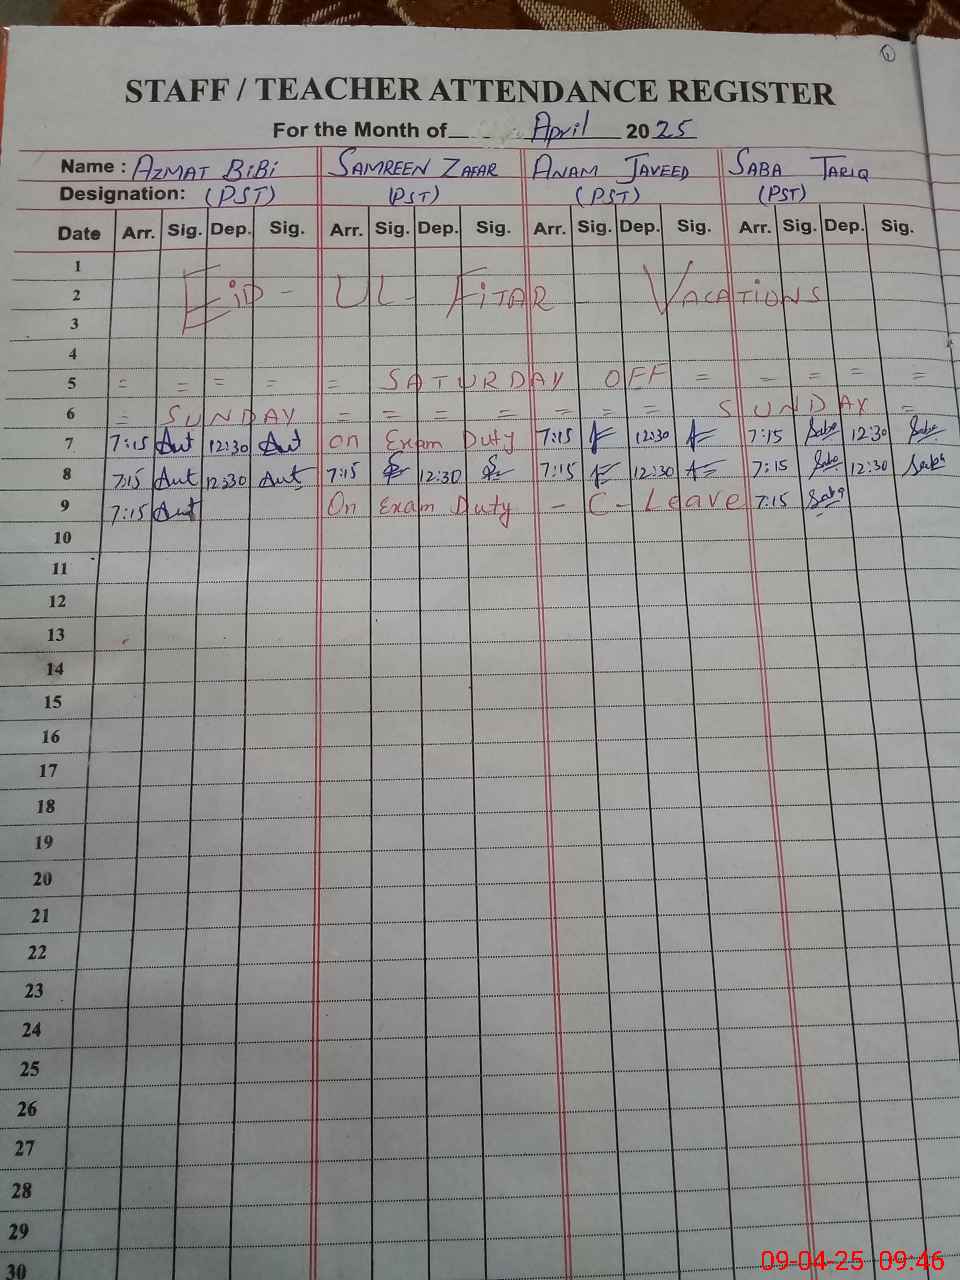 1
STAFF / TEACHER ATTENDANCE REGISTER
For the Month of April 2025
Name : AZMAT BiBi SAMREEN ZAFAR ANAM JAVEED SABA TARIQ
Designation: (PST) (PST) (PST) (PST)
Date Arr. Sig. Dep. Sig. Arr. Sig. Dep. Sig. Arr. Sig. Dep. Sig. Arr. Sig. Dep. Sig.
1
2 EiD - UL- FiTAR VACATIONS
3
4
5 = = = = = SATURDAY OFF = = = = =
6 = SUNDAY = = = = = = = SUNDAY =
7 7:15 12:30 on Exam Duty 7:15 12:30 7:15 Saba 12:30 Saba
8 7:15 12:30 7:15 12:30 7:15 12:30 7:15 Saba 12:30 Saba
9 7:15 On Exam Duty - C- Leave 7:15 Saba
10
11
12
13
14
15
16
17
18
19
20
21
22
23
24
25
26
27
28
29
30
09-04-25 09:46